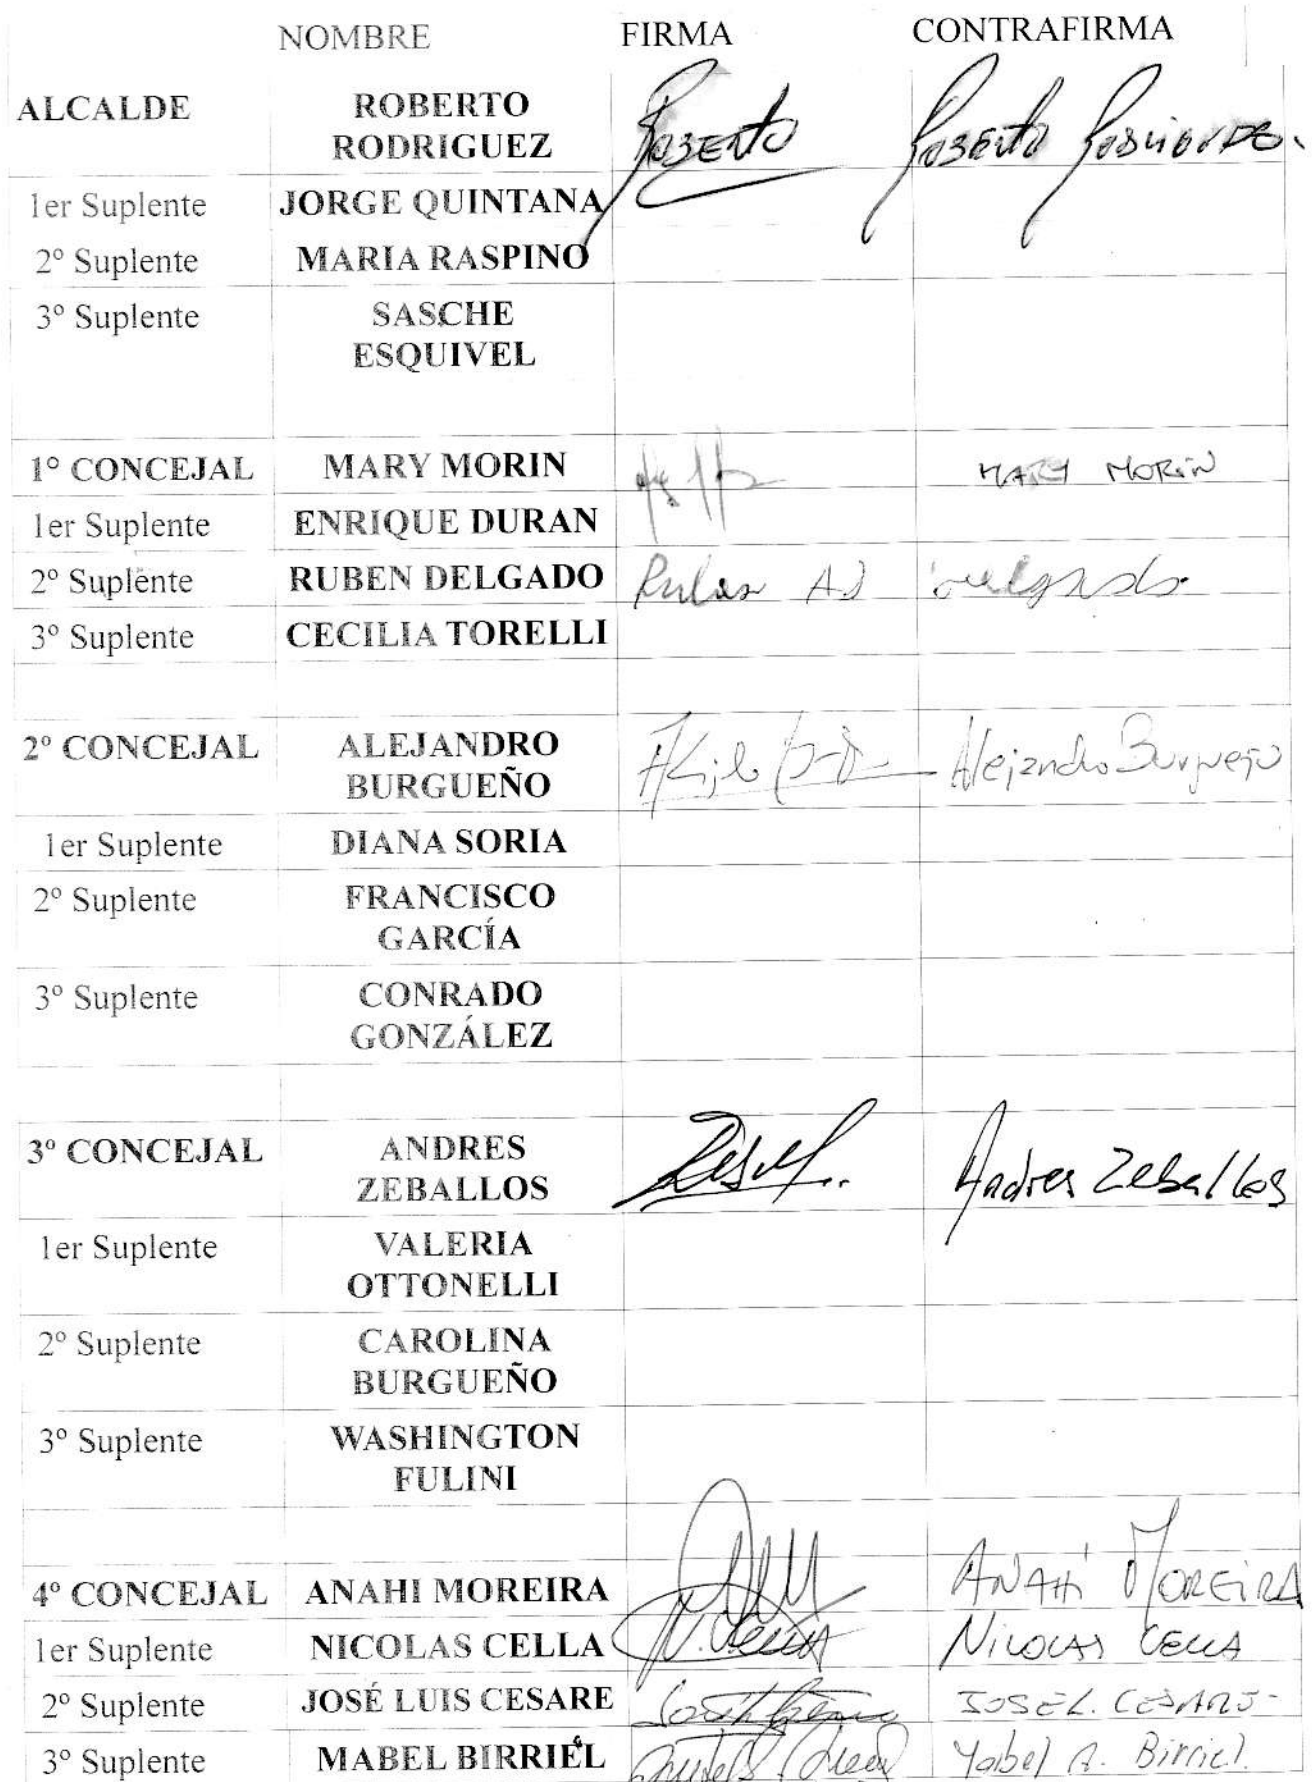 NOMBRE FIRMA CONTRAFIRMA
ALCALDE ROBERTO RODRIGUEZ Roberto Roberto
1er Suplente JORGE QUINTANA
2º Suplente MARIA RASPINO
3º Suplente SASCHE ESQUIVEL
1º CONCEJAL MARY MORIN MARY MORIN
1er Suplente ENRIQUE DURAN
2º Suplente RUBEN DELGADO Delgado
3º Suplente CECILIA TORELLI
2º CONCEJAL ALEJANDRO BURGUEÑO Alejandro Burgueño
1er Suplente DIANA SORIA
2º Suplente FRANCISCO GARCÍA
3º Suplente CONRADO GONZÁLEZ
3º CONCEJAL ANDRES ZEBALLOS Andres Zeballos
1er Suplente VALERIA OTTONELLI
2º Suplente CAROLINA BURGUEÑO
3º Suplente WASHINGTON FULINI
4º CONCEJAL ANAHI MOREIRA ANAHÍ MOREIRA
1er Suplente NICOLAS CELLA N. Cella NICOLAS CELLA
2º Suplente JOSÉ LUIS CESARE JOSE L. CESARE
3º Suplente MABEL BIRRIEL Mabel A. Birriel